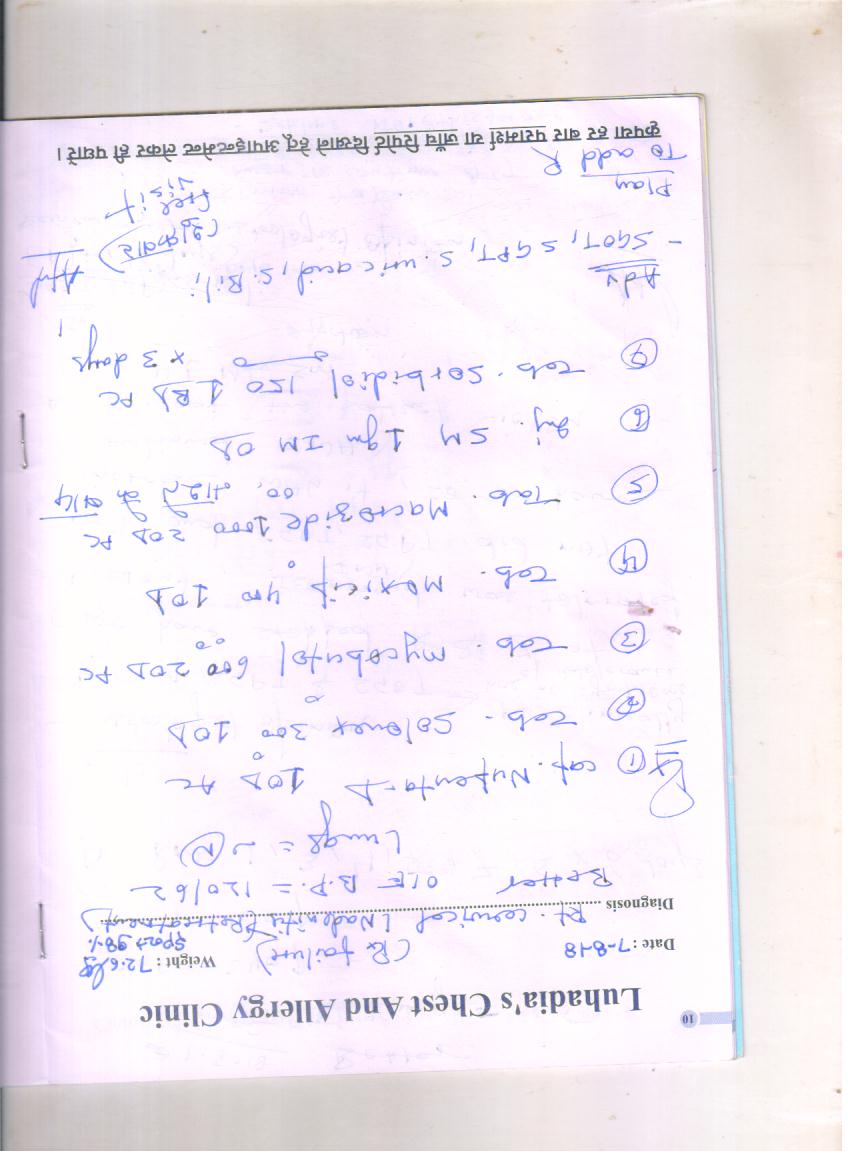 10
Luhadia's Chest And Allergy Clinic
Date : 7-8-18 (Rx failure) Weight : 72.6 kg
SpO2 98%
Diagnosis Rt. cervical LNadenitis (Retreatment)
Better O/E B.P. = 120/62
Lungs = N
Rx
① cap. Nupenta-D 1OD AC
② Tab. Solonex 300 1OD
③ Tab. mycobutol 600 2OD PC
④ Tab. Moxicip 400 1OD
⑤ Tab. Macrozide 1000 2OD PC
⑥ Inj. SM 1gm IM OD
⑦ Tab. Sorbidiol 150 1BD PC
x 3 days
Adv
- SGOT, SGPT, S. uric acid, S. Bili,
Plan
To add R
Free
Visit
कृपया हर बार परामर्श या जाँच रिपोर्ट दिखाने हेतु अपाइन्टमेन्ट लेकर ही पधारें।